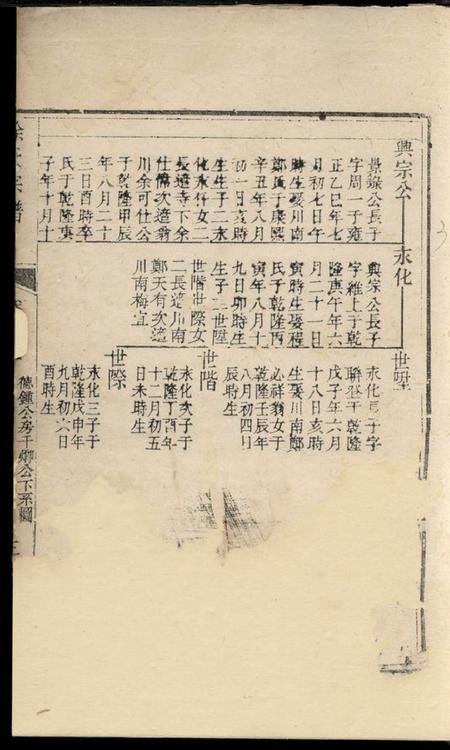 興宗公
景鐩公長子
字周一于雍
正乙巳年七
月初七日午
時生娶川南
鄭氏于康熙
辛丑年八月
初一日亥時
生生子二永
化永祥女二
長適寺下余
仕儒次適翁
川余可仕公
于乾隆甲辰
年八月二十
三日酉時卒
氏于乾隆庚
子年十月十
永化
興宗公長子
字維上于乾
隆庚午年六
月二十一日
寅時生娶程
氏于乾隆酉
寅年八月十
九日卯時生
生子三世陞
世階世際女
二長適川南
鄭天有次適
川南梅宜
世陞
永化長子字
聯登于乾隆
戊子年六月
十八日亥時
生娶川南鄭
必祥翁女于
乾隆壬辰年
八月初四日
辰時生
世階
永化次子于
乾隆丁酉年
十二月初五
日未時生
世際
永化三子于
乾隆戊申年
九月初六日
酉時生
余氏宗譜
德鍾公房千
公下系圖